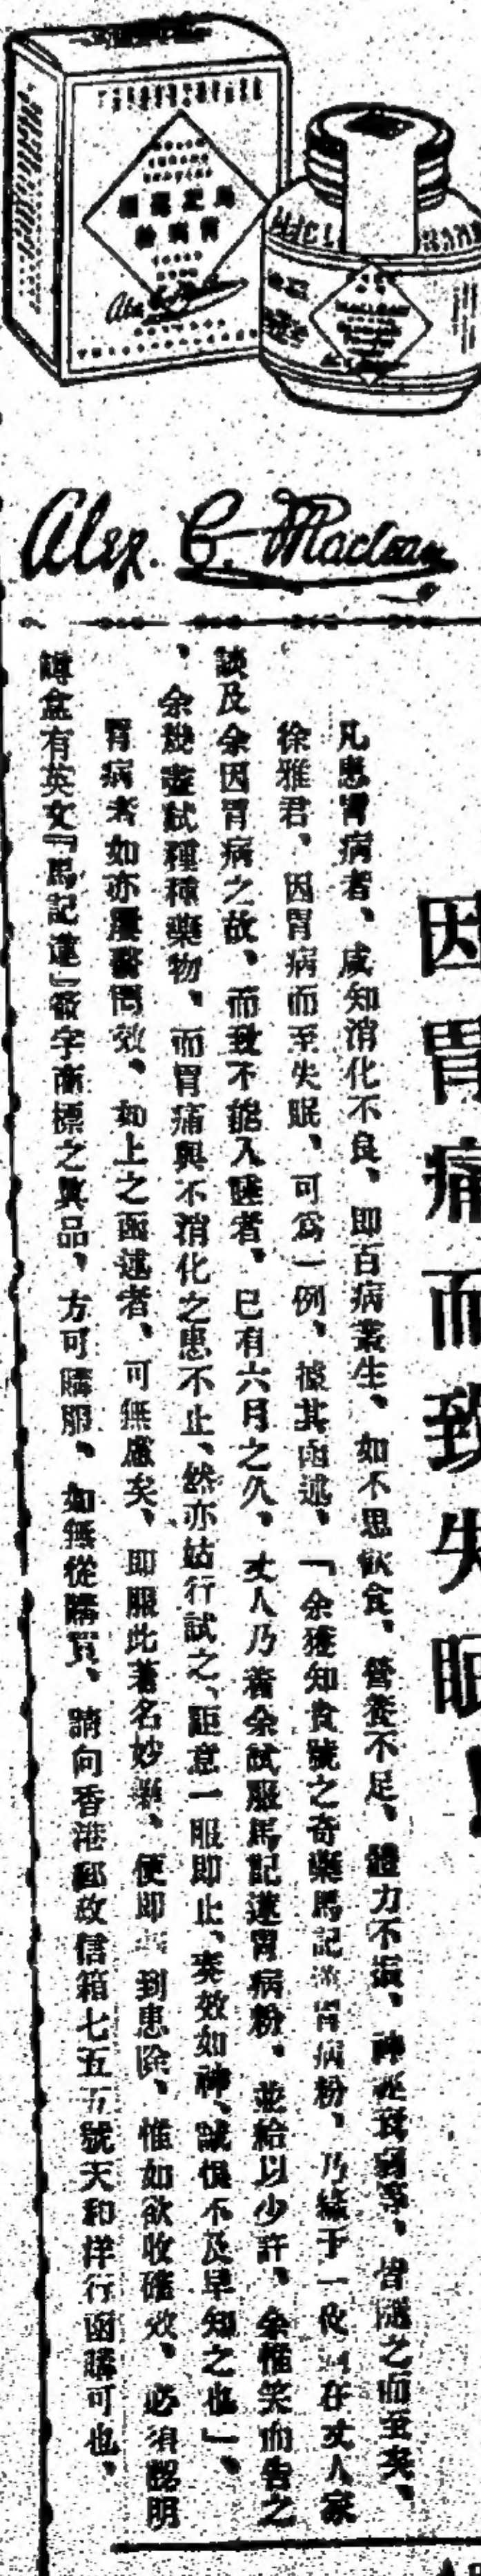 因胃痛而致失眠！
凡患胃病者、咸知消化不良、即百病叢生、如不思飲食、營養不足、體力不振、神經衰弱等、皆隨之而至矣、
徐雅君、因胃病而至失眠、可爲一例、據其函述、「余獲知貴號之奇藥馬記 胃病粉、乃緣于一夜 在丈人家
談及余因胃病之故、而致不能入睡者、已有六月之久、丈人乃着余試服馬記蓮胃病粉、並給以少許、余惟笑而告之
、余幾盡試種種藥物、而胃痛與不消化之患不止、然亦姑行試之、詎意一服即止、奏效如神、誠恨不及早知之也」、
胃病者如亦屢醫罔效、如上之函述者、可無慮矣、即服此著名妙藥、便即 到患除、惟如欲收確效、必須認明
樽盒有英文「馬記蓮」簽字商標之眞品、方可購服、如無從購買、請向香港郵政信箱七五五號天和洋行函購可也、
Alex. C. Maclean